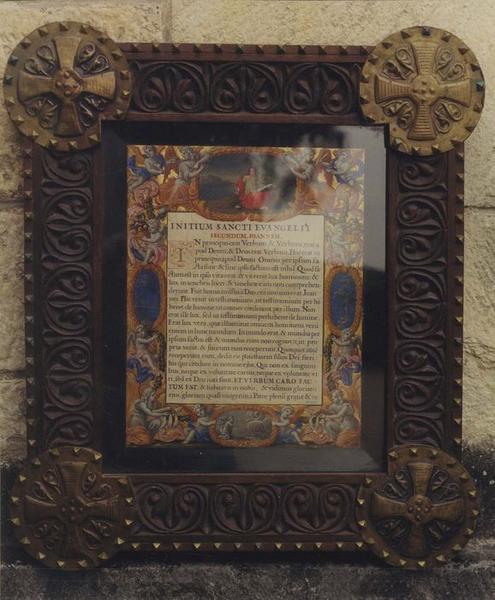 INITIUM SANCTI EVANGELII
SECUNDUM IOANNEM.
IN principio erat Verbum: & Verbum erat a
pud Deum: & Deus erat Verbum. Hoc erat in
principio apud Deum. Omnia per ipsum fa
cta sunt: & sine ipso factum est nihil. Quod fa
ctum est in ipso vita erat: & vita erat lux hominum: &
lux in tenebris lucet: & tenebræ eam non comprehen
derunt. Fuit homo missus a Deo, cui nomen erat Joan
nes. Hic venit in testimonium, ut testimonium per hi
beret de lumine, ut omnes crederent per illum. Non
erat ille lux, sed ut testimonium perhiberet de lumine.
Erat lux vera, quæ illuminat omnem hominem veni
entem in hunc mundum. In mundo erat: & mundus per
ipsum factus est: & mundus eum non cognovit. in pro
pria venit: & sui eum non receperunt. Quotquot autē
receperunt eum, dedit eis potestatem filios Dei fieri
his qui credunt in nomine ejus. Qui non ex sanguini
bus, neque ex voluntate carnis, neque ex voluntate vi
ri, sed ex Deo nati sunt. ET VERBUM CARO FAC
TUM EST: & habitavit in nobis, & vidimus gloriam
ejus, gloriam quasi unigeniti a Patre plenū gratiæ & ve